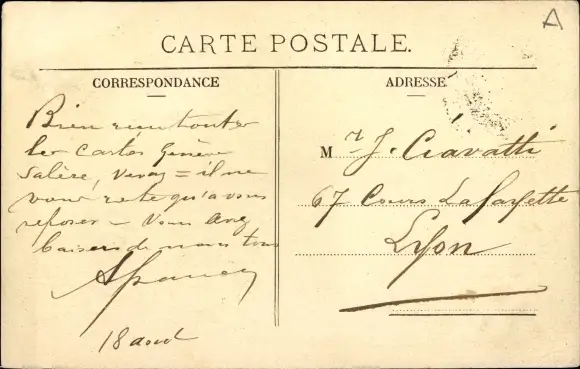 A
CARTE POSTALE.
CORRESPONDANCE
Bien reçu toutes
les cartes Genève
Salève, = il ne
vous reste qu'a vous
reposer — Vous avez
baisers de nous tous
18 aout
ADRESSE
Mr J. Ciavatti
67 Cours Lafayette
Lyon